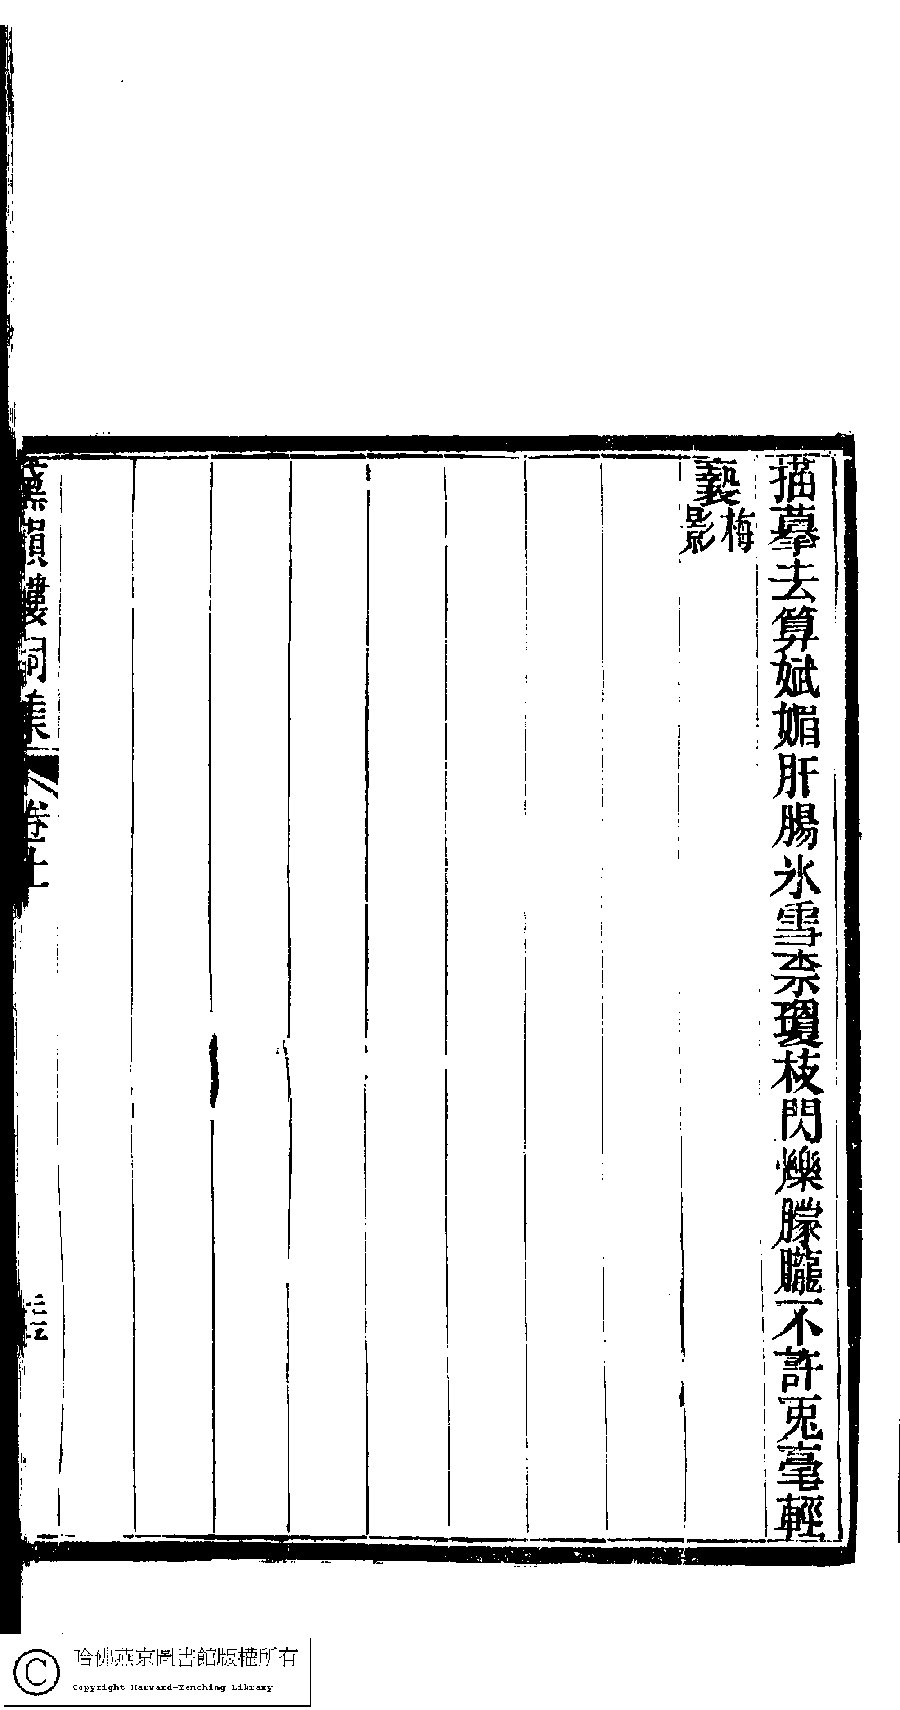 描摹去算斌媚肝腸氷雪柰瓊枝閃爍朦朧不許兎毫輕
褻梅影
韻樓詞集
卷上
哈佛燕京圖書館版權所有
Copyright Harvard-Yenching Library